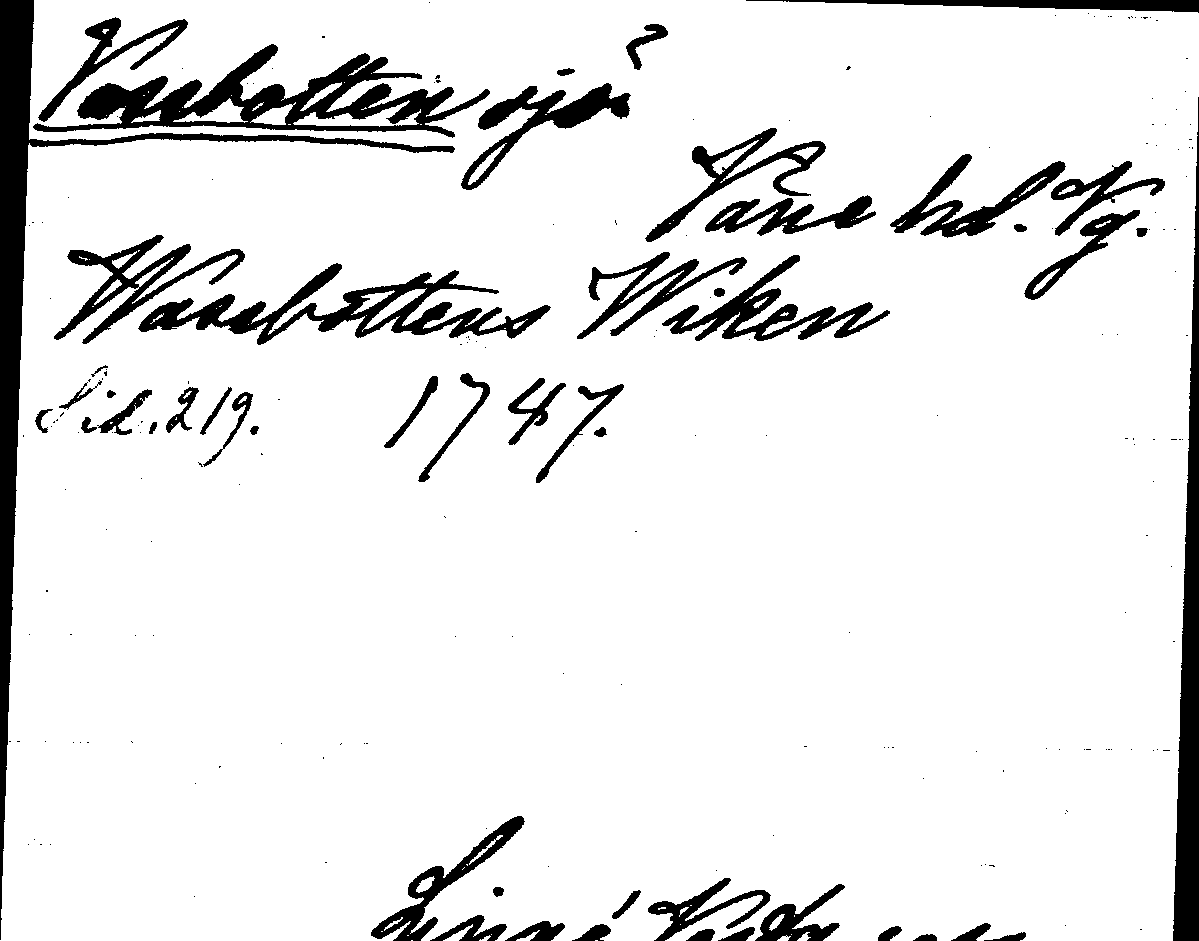 Vassbotten sjö?
Väne hd. Vg.
Wassbottens Wiken
Sid. 219. 1747.
Linné